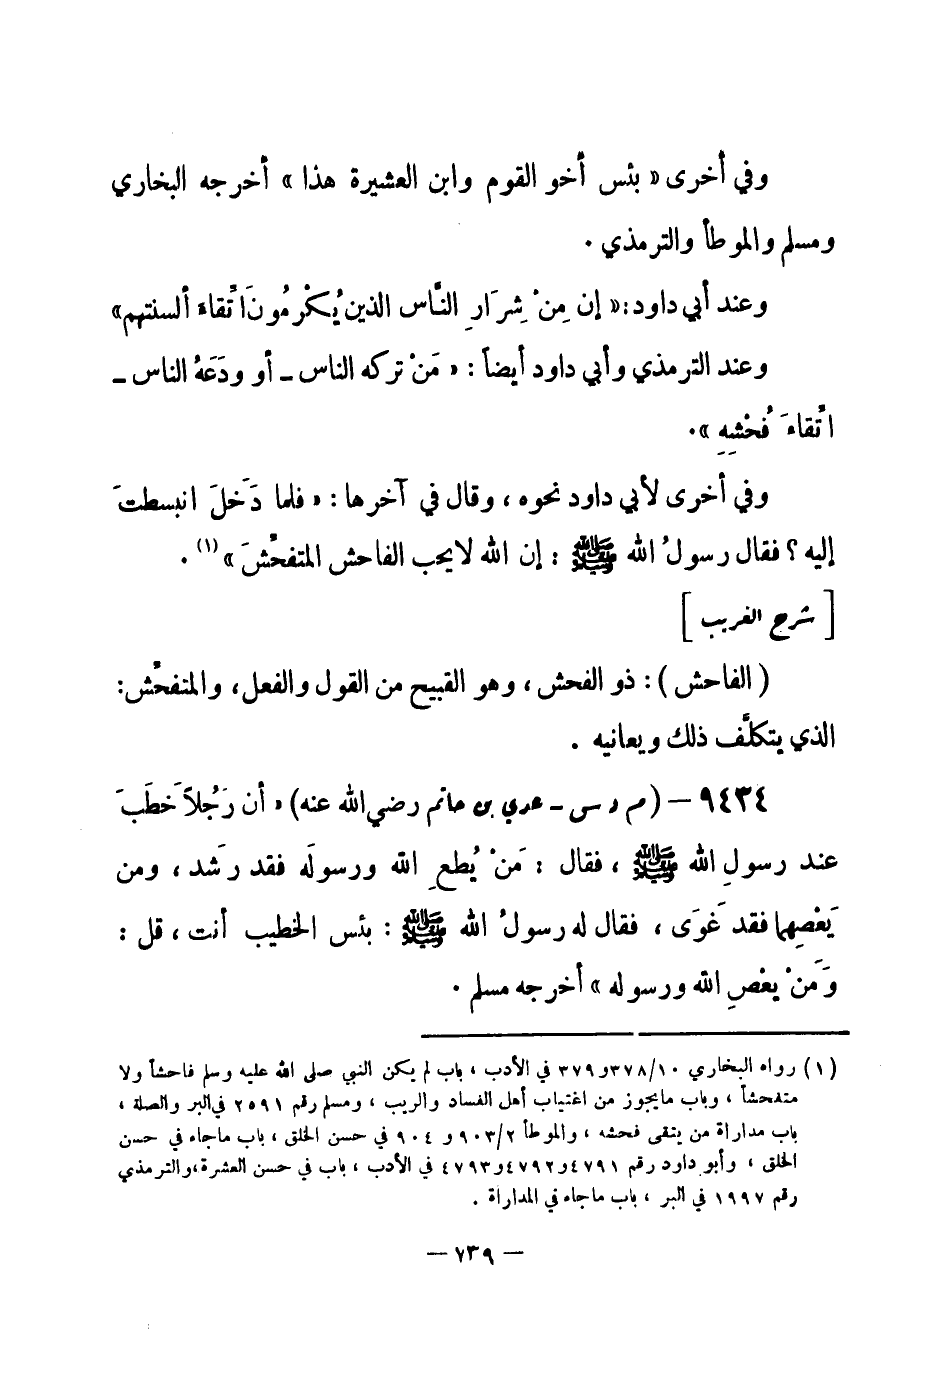 وفي أخرى « بئس أخو القوم وابن العشيرة هذا » أخرجه البخاري
ومسلم والموطأ والترمذي .
وعند أبي داود : « إن مِنْ شِرَارِ النَّاس الذين يُكْرمُونَ اتِّقاءَ ألسنتهم»
وعند الترمذي وأبي داود أيضاً : « مَنْ تركه الناس ـ أو ودَعَهُ الناس ـ
اتِّقاءَ فُحْشِهِ » .
وفي أخرى لأبي داود نحوه ، وقال في آخرها : « فلما دَخَلَ انبسطتَ
إليه ؟ فقال رسولُ الله ﷺ : إن الله لا يحب الفاحش المتفحِّشَ » (١) .
[ شرح الغريب ]
( الفاحش ) : ذو الفحش ، وهو القبيح من القول والفعل ، والمتفحِّش :
الذي يتكلَّف ذلك ويعانيه .
٩٤٣٤ – ( م د س ـ عدي بن حاتم رضي الله عنه ) « أن رَجُلاً خَطَبَ
عند رسولِ الله ﷺ ، فقال : مَنْ يُطعِ الله ورسولَه فقد رشَد ، ومن
يَعْصِهما فقد غَوَى ، فقال له رسولُ الله ﷺ : بئس الخطيب أنت ، قل :
وَمَنْ يعْصِ الله ورسوله » أخرجه مسلم .
(١) رواه البخاري ١٠/٣٧٨ و ٣٧٩ في الأدب ، باب لم يكن النبي صلى الله عليه وسلم فاحشاً ولا
متفحشاً ، وباب مايجوز من اغتياب أهل الفساد والريب ، ومسلم رقم ٢٥٩١ في البر والصلة ،
باب مداراة من يتقى فحشه ، والموطأ ٢/٩٠٣ و ٩٠٤ في حسن الخلق ، باب ماجاء في حسن
الخلق ، وأبو داود رقم ٤٧٩١ و ٤٧٩٢ و ٤٧٩٣ في الأدب ، باب في حسن العشرة ، والترمذي
رقم ١٩٩٧ في البر ، باب ماجاء في المداراة .
— ٧٣٩ —